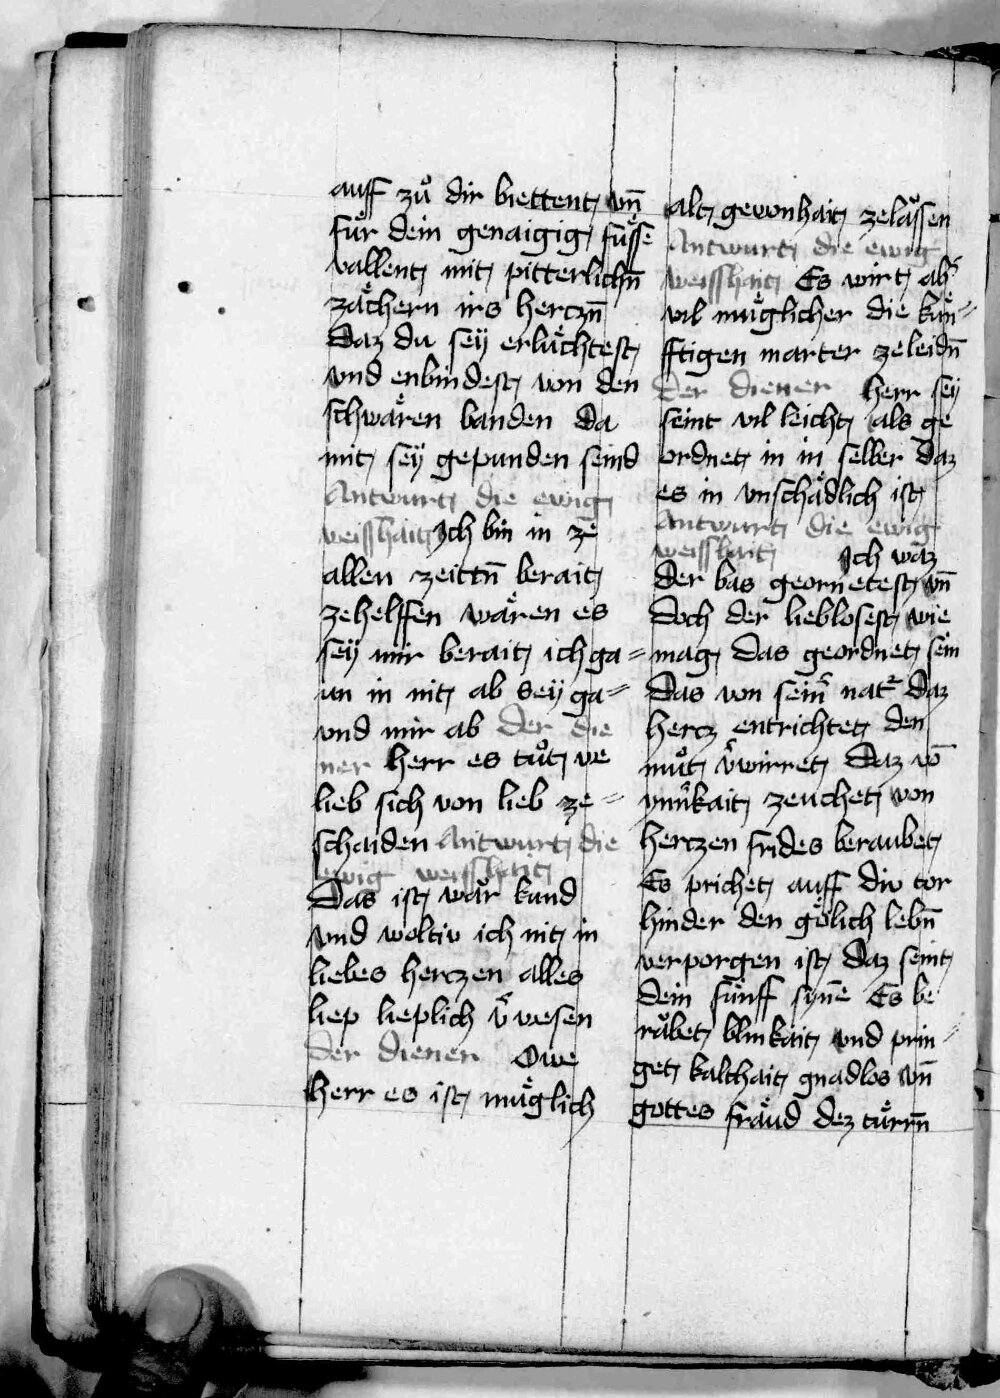 auff zů dir biettent vn̄
für dein genaigig füsse
vallent mit pitterlichn̄
zächern irs herczn̄
Daz du sey erlüchtest
vnd enbindest von den
schwären banden Da
mit sey gepunden seind
Antwurt die ewig
weisshait Ich bin in ze
allen zeittn̄ berait
zehelffen wären es
sey mir berait ich ga=
un in nit ab sey ga=
vnd mir ab der die
ner herr es tůt we
lieb sich von lieb ze=
schaiden Antwurt die
ewig weisshait
Das ist war kund
vnd woltiv ich nit in
liebes herczen alles
liep lieplich v̄wesen
der diener Owe
herr es ist müglich
alt gewonhait zelässen
Antwurt die ewig
weisshait Es wirt ab̄
vil müglicher die kün=
fftigen marter zeleidn̄
der diener herr sey
seint vil leicht als ge
ordnet in in selber Daz
es in vnschädlich ist
Antwurt die ewig
weisshait Ich waz
der bas geornetest vn̄
doch der lieblosest wie
mag das geordnet sein
Das von sein̄ nat Daz
hercz entrichtet den
můt v̄wirret Daz vō
ynn̄kait zeuchet von
herczen frides beraubet
Es prichet auff div tor
hinder den gölich lebn̄
verporgen ist Daz seint
dein fünff syn̄e Es be
räbet blinkait vnd prin=
get kalthait gnadlos vn̄
gottes fräud dez türrn̄